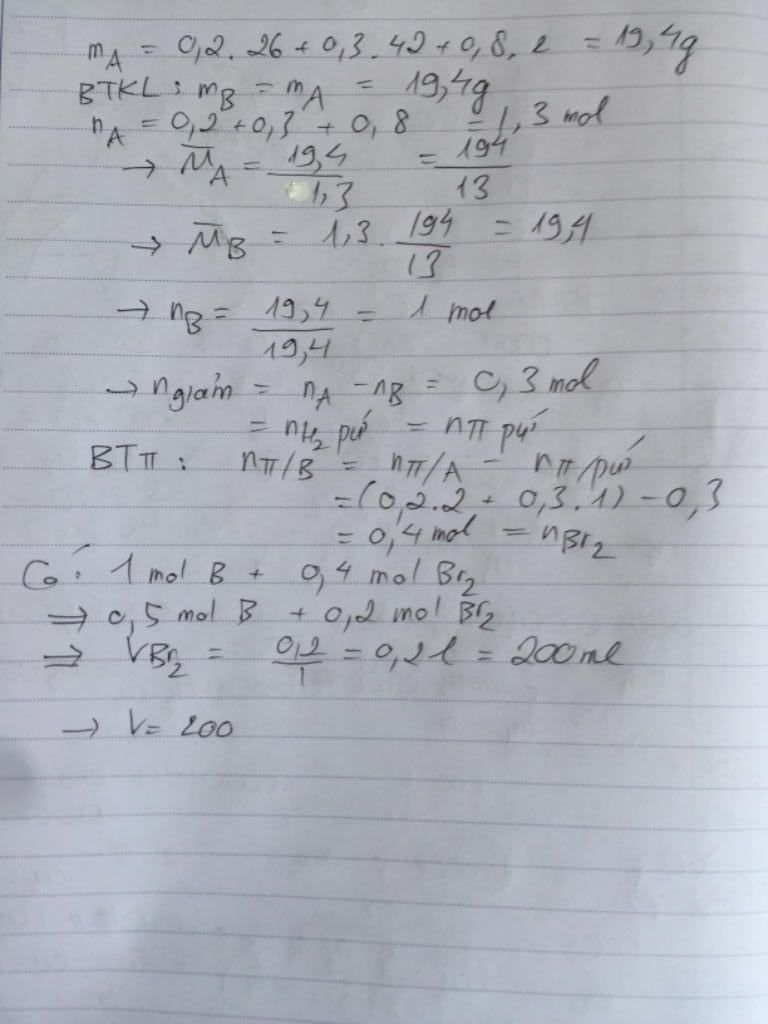 m_A = 0,2.26 + 0,3.42 + 0,8.2 = 19,4g
BTKL: m_B = m_A = 19,4g
n_A = 0,2 + 0,3 + 0,8 = 1,3 mol
→ M̄_A = 19,4/1,3 = 194/13
→ M̄_B = 1,3 . 194/13 = 19,4
→ n_B = 19,4/19,4 = 1 mol
→ n giảm = n_A - n_B = 0,3 mol
= n_H₂ pứ = nπ pứ
BTπ: nπ/B = nπ/A - nπ/pứ
= (0,2.2 + 0,3.1) - 0,3
= 0,4 mol = n_Br₂
Có: 1 mol B + 0,4 mol Br₂
⇒ 0,5 mol B + 0,2 mol Br₂
⇒ V_Br₂ = 0,2/1 = 0,2 l = 200 ml
→ V = 200